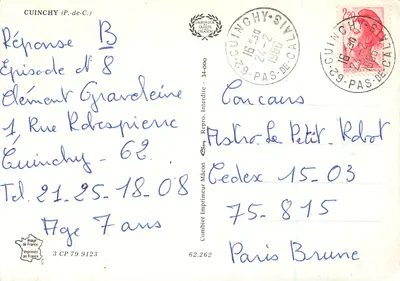 CUINCHY (P.-de-C.)
Réponse B
Episode N° 8
Clément Graveleine
1 Rue Robespierre
Cuinchy - 62
Tel. 21-25-18-08
Age 7 ans
3 CP 79 9123
62.262
Combier Imprimeur Mâcon
Repro. Interdite - 34.000
CUINCHY-LYS
24-2
1986
62-PAS-DE-CALAIS
2,20
Concours
Astro Le Petit Robot
Cedex 15-03
75-815
Paris Brune